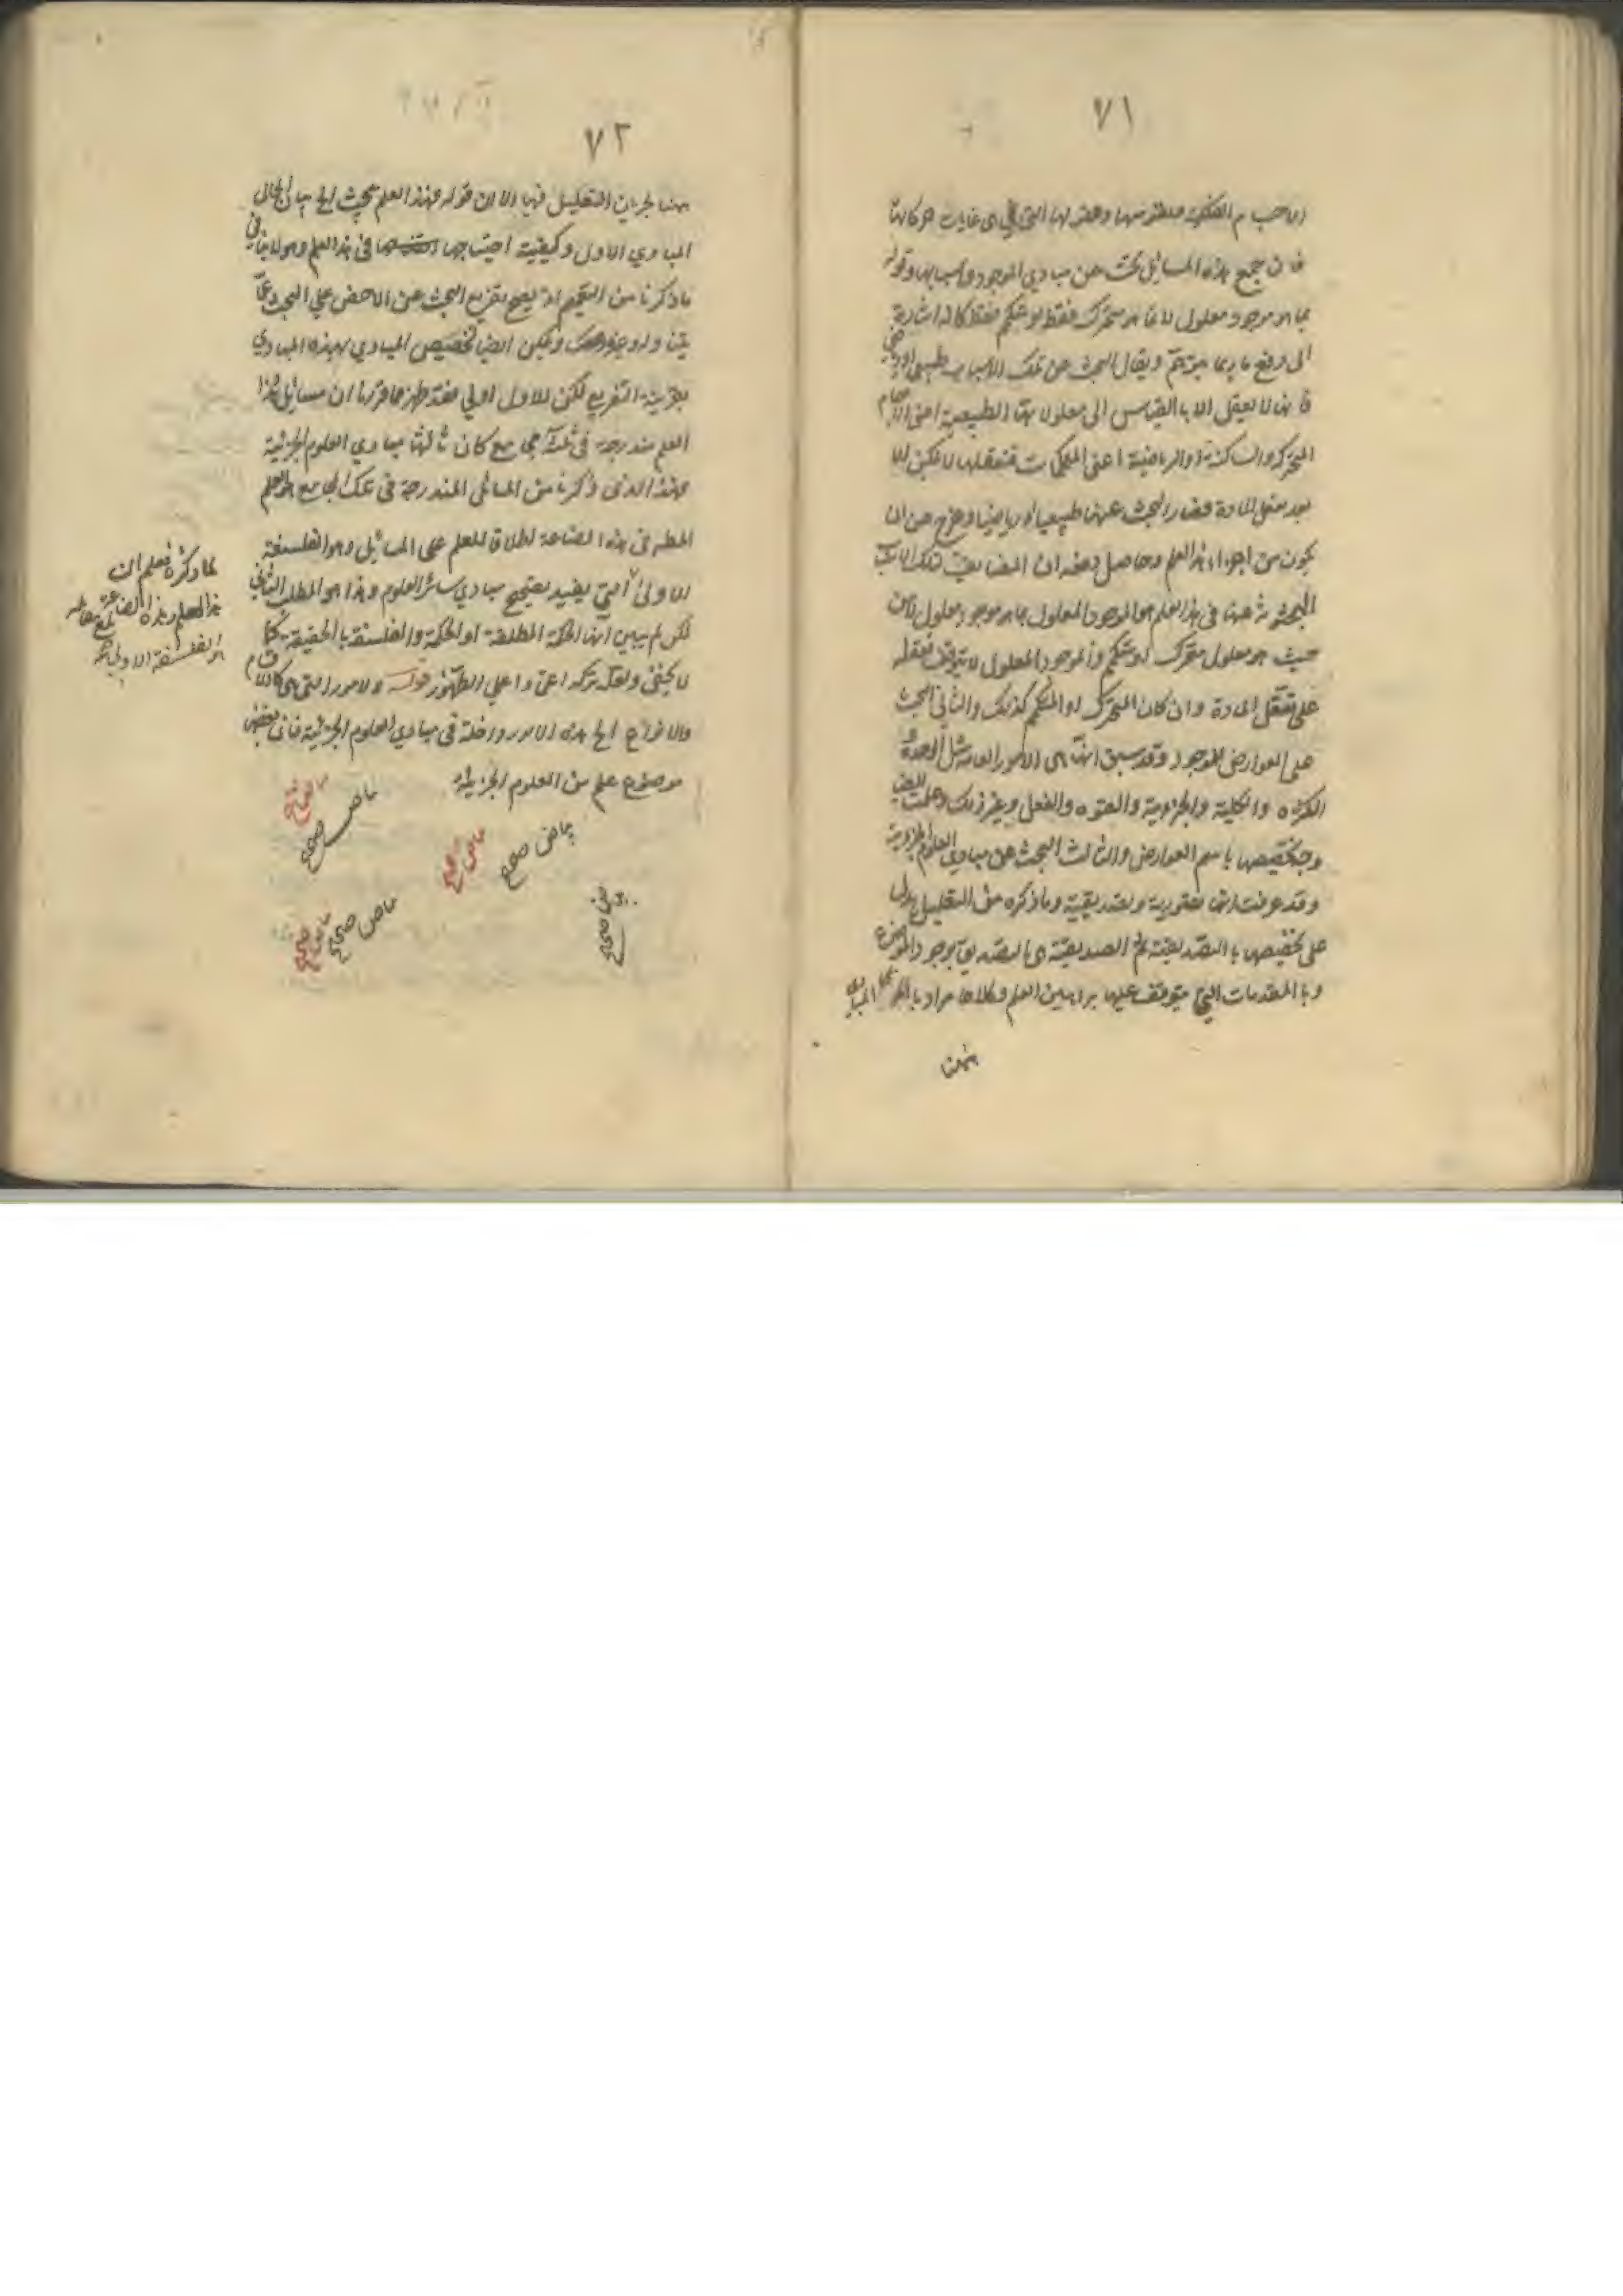 ٧١
الاجسام الفلكية ونفوسها وعقولها التي هي غايات حركاتها
فان جميع هذه المسائل بحث عن مبادي الموجود واسبابها وقوله
بما هو موجود معلول لا بما هو متحرك فقط او متكمم فقط كانه اشارة
الى دفع ما ربما يتوهم ويقال البحث عن تلك الاسباب طبيعي او رياضي
فانها لا تعقل الا بالقياس الى معلولاتها الطبيعية اعني الاجسام
المتحركة والساكنة او الرياضية اعني المتكممات فتعقلها لا يمكن الا
بعد تعقل المادة فصار البحث عنها طبيعيا او رياضيا وخرج عن ان
يكون من اجزاء هذا العلم وحاصل دفعه ان المضايف لتلك الاسباب
المبحوث عنها في هذا العلم هو الموجود المعلول بما هو موجود معلول لا من
حيث هو معلول متحرك او متكمم والموجود المعلول لا يتوقف تعقله
على تعقل المادة وان كان المتحرك او المتكمم كذلك والثاني البحث
على العوارض للموجود وقد سبق انها هي الامور العامة مثل الوحدة
الكثرة والكلية والجزوية والقوة والفعل وغير ذلك وعلمت ايضا
وجه تخصيصها باسم العوارض والثالث البحث عن مبادي العلوم الجزوية
وقد عرفت انها تصورية وتصديقية وما ذكره من التعليل يدل
على تخصيصها بالتصديقية ثم التصديقية هي التصديق بوجود الموضوع
وبالمقدمات التي يتوقف عليها براهين العلم وكلاهما مراد
المبادي
ههنا
٧٢
ههنا لجريان التعليل فيها الا ان قوله فهذا العلم يبحث الخ بيان لحال
المبادي الاول وكيفية احتياجها في هذا العلم وهو لا ينافي
ما ذكرنا من التعميم اذ يصح تفريع البحث عن الاخص على البحث عما
يتناوله وغيره ويمكن ايضا تخصيص المبادي بهذه المبادي
بقرينة التفريع لكن الاول اولى فقد ظهر مما قررنا ان مسائل هذا
العلم مندرجة في ثلثة مجامع كان ثالثها مبادي العلوم الجزئية
فهذا الذي ذكرنا من المسائل المندرجة في تلك المجامع هو العلم
المطلوب في هذه الصناعة لاطلاق العلم على المسائل وهو الفلسفة
الاولى التي يفيد تصحيح مبادي سائر العلوم وهذا هو المطلب الثاني
لكن لم يبين انها الحكمة المطلقة او الحكمة والفلسفة بالحقيقة كما
لا يخفى ولعله تركه اعتمادا على الظهور قوله والامور التي هي كالاقسام
والانواع الخ هذه الامور داخلة في مبادي العلوم الجزئية فان بعض
موضوع علم من العلوم الجزئية
مما ذكره فعلم ان
هذا العلم وهذه الصناعة
هو الفلسفة الاولى
بياض صحيح
بياض صحيح
بياض صحيح
بياض صحيح
بياض صحيح
بياض صحيح
بياض صحيح